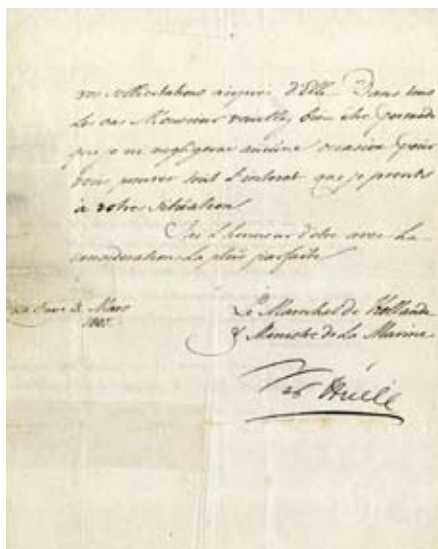 mes sollicitations auprès d'Elle. Dans tous
les cas Monsieur veuillez bien être persuadé
que je ne negligerai aucune occasion pour
vous prouver tout l'interet que je prends
à votre situation
J'ai l'honneur d'être avec la
consideration la plus parfaite
La Haye 3. Mars
Le Marechal de Hollande
& Ministre de la Marine
Ver Huell